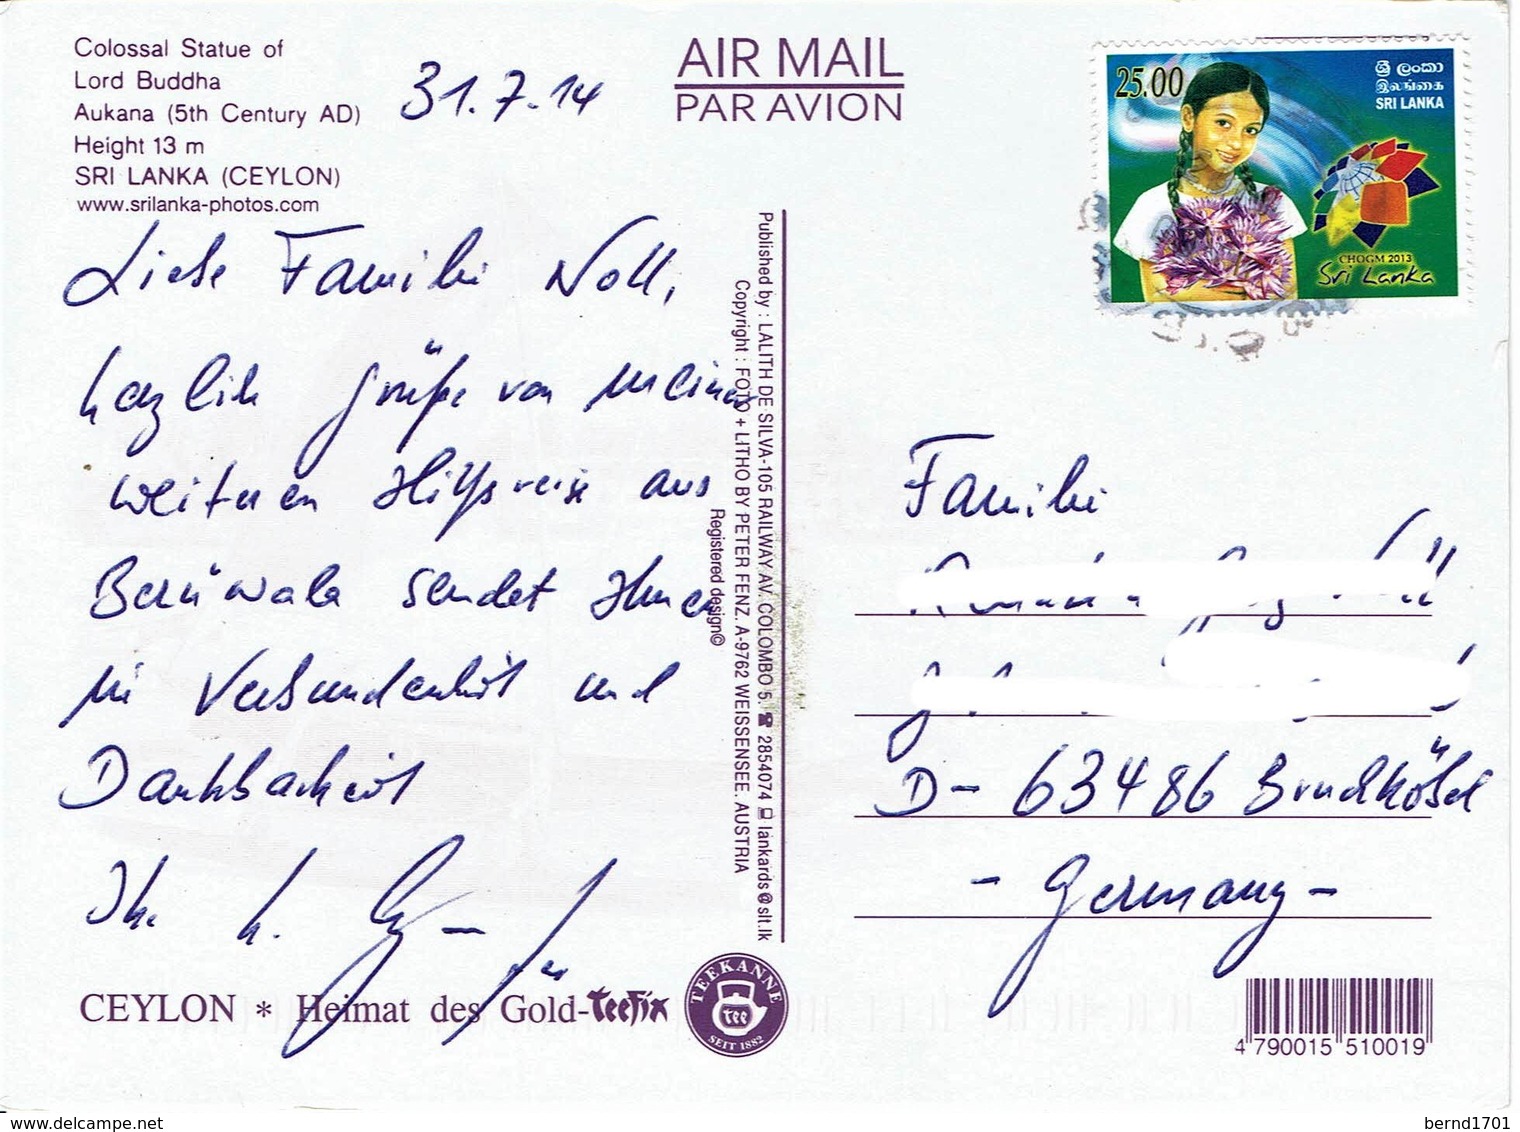 Colossal Statue of
Lord Buddha
Aukana (5th Century AD)
Height 13 m
SRI LANKA (CEYLON)
www.srilanka-photos.com
31.7.14
AIR MAIL
PAR AVION
25.00
ශ්‍රී ලංකා
இலங்கை
SRI LANKA
CHOGM 2013
Sri Lanka
Liebe Familie Noll,
herzliche Grüße von meiner
weiteren Hilfsreise aus
Berüwala sendet Ihnen
in Verbundenheit und
Dankbarkeit
Ihr
Published by : LALITH DE SILVA-105 RAILWAY AV. COLOMBO 5. ☎ 2854074 lankards@slt.lk
Copyright : FOTO + LITHO BY PETER FENZ. A-9762 WEISSENSEE. AUSTRIA
Registered design©
Familie
D-63486 Bruchköbel
- Germany -
CEYLON * Heimat des Gold-TeeFix
TEEKANNE
tee
SEIT 1882
4 790015 510019
www.delcampe.net
bernd1701